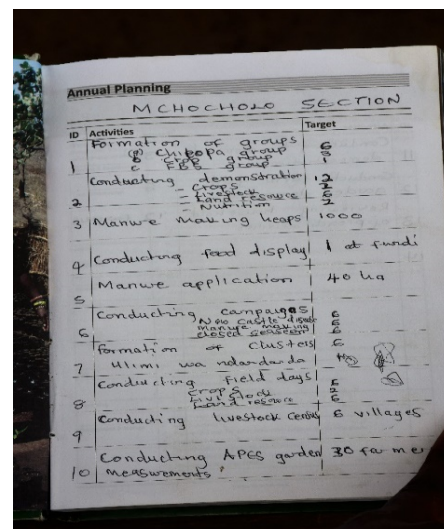 Annual Planning
MCHOCHOLO SECTION
ID Activities Target
Formation of groups
(a) Chipopa group 6
b crops group
1 c FBS group
Conducting demonstration 12
- Crops 2
- Livestock
2 - Land resource
- Nutrition 2
3 Manure making heaps 1000
4 Conducting food display 1 at fundi
5 Manure application 40 ha
Conducting campaigns 6
New castle disease 6
6 manure making 6
closed season
Formation of clusters 6
7 Ulimi wa ndandanda
Conducting field days
crops
8 Livestock 2
Land resource 6
9 Conducting livestock census 6 villages
Conducting APES garden 30 farmer
10 measurements